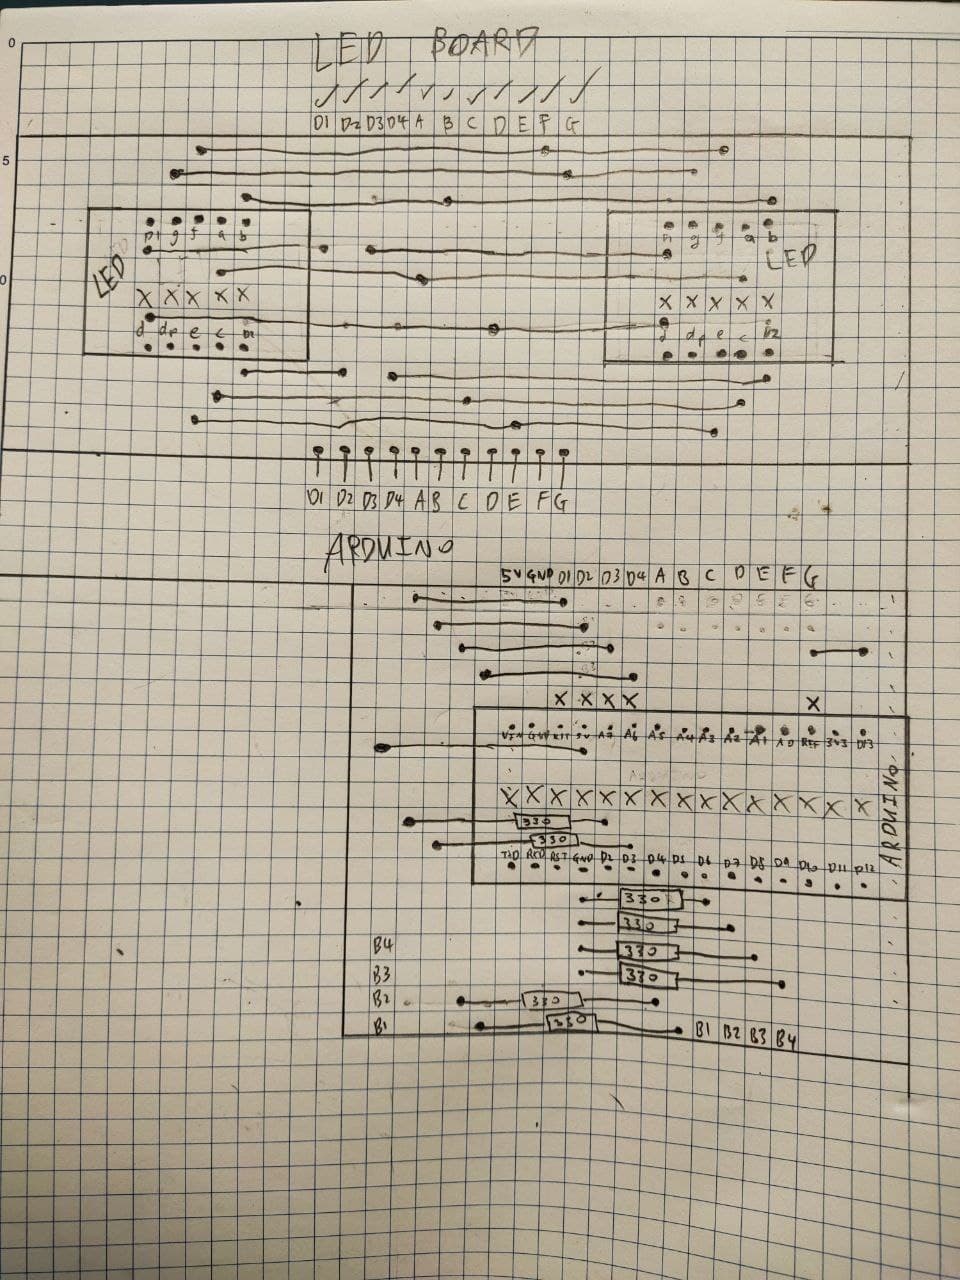 LED BOARD
D1 D2 D3 D4 A B C D E F G
0
5
D1 g f a b
g f a b
LED
LED
0
X X X X X
X X X X X
d dp e c D1
d dp e c D2
D1 D2 D3 D4 A B C D E F G
ARDUINO
5V GND D1 D2 D3 D4 A B C D E F G
X X X X X
VIN GND RST 5V A7 A6 A5 A4 A3 A2 A1 A0 REF 3V3 D13
ARDUINO
X X X X X X X X X X X X X X X
330
330
RST GND D2 D3 D4 D5 D6 D7 D8 D9 D10 D11 D12
330
330
B4
330
B3
330
B2
330
B1
330
B1 B2 B3 B4